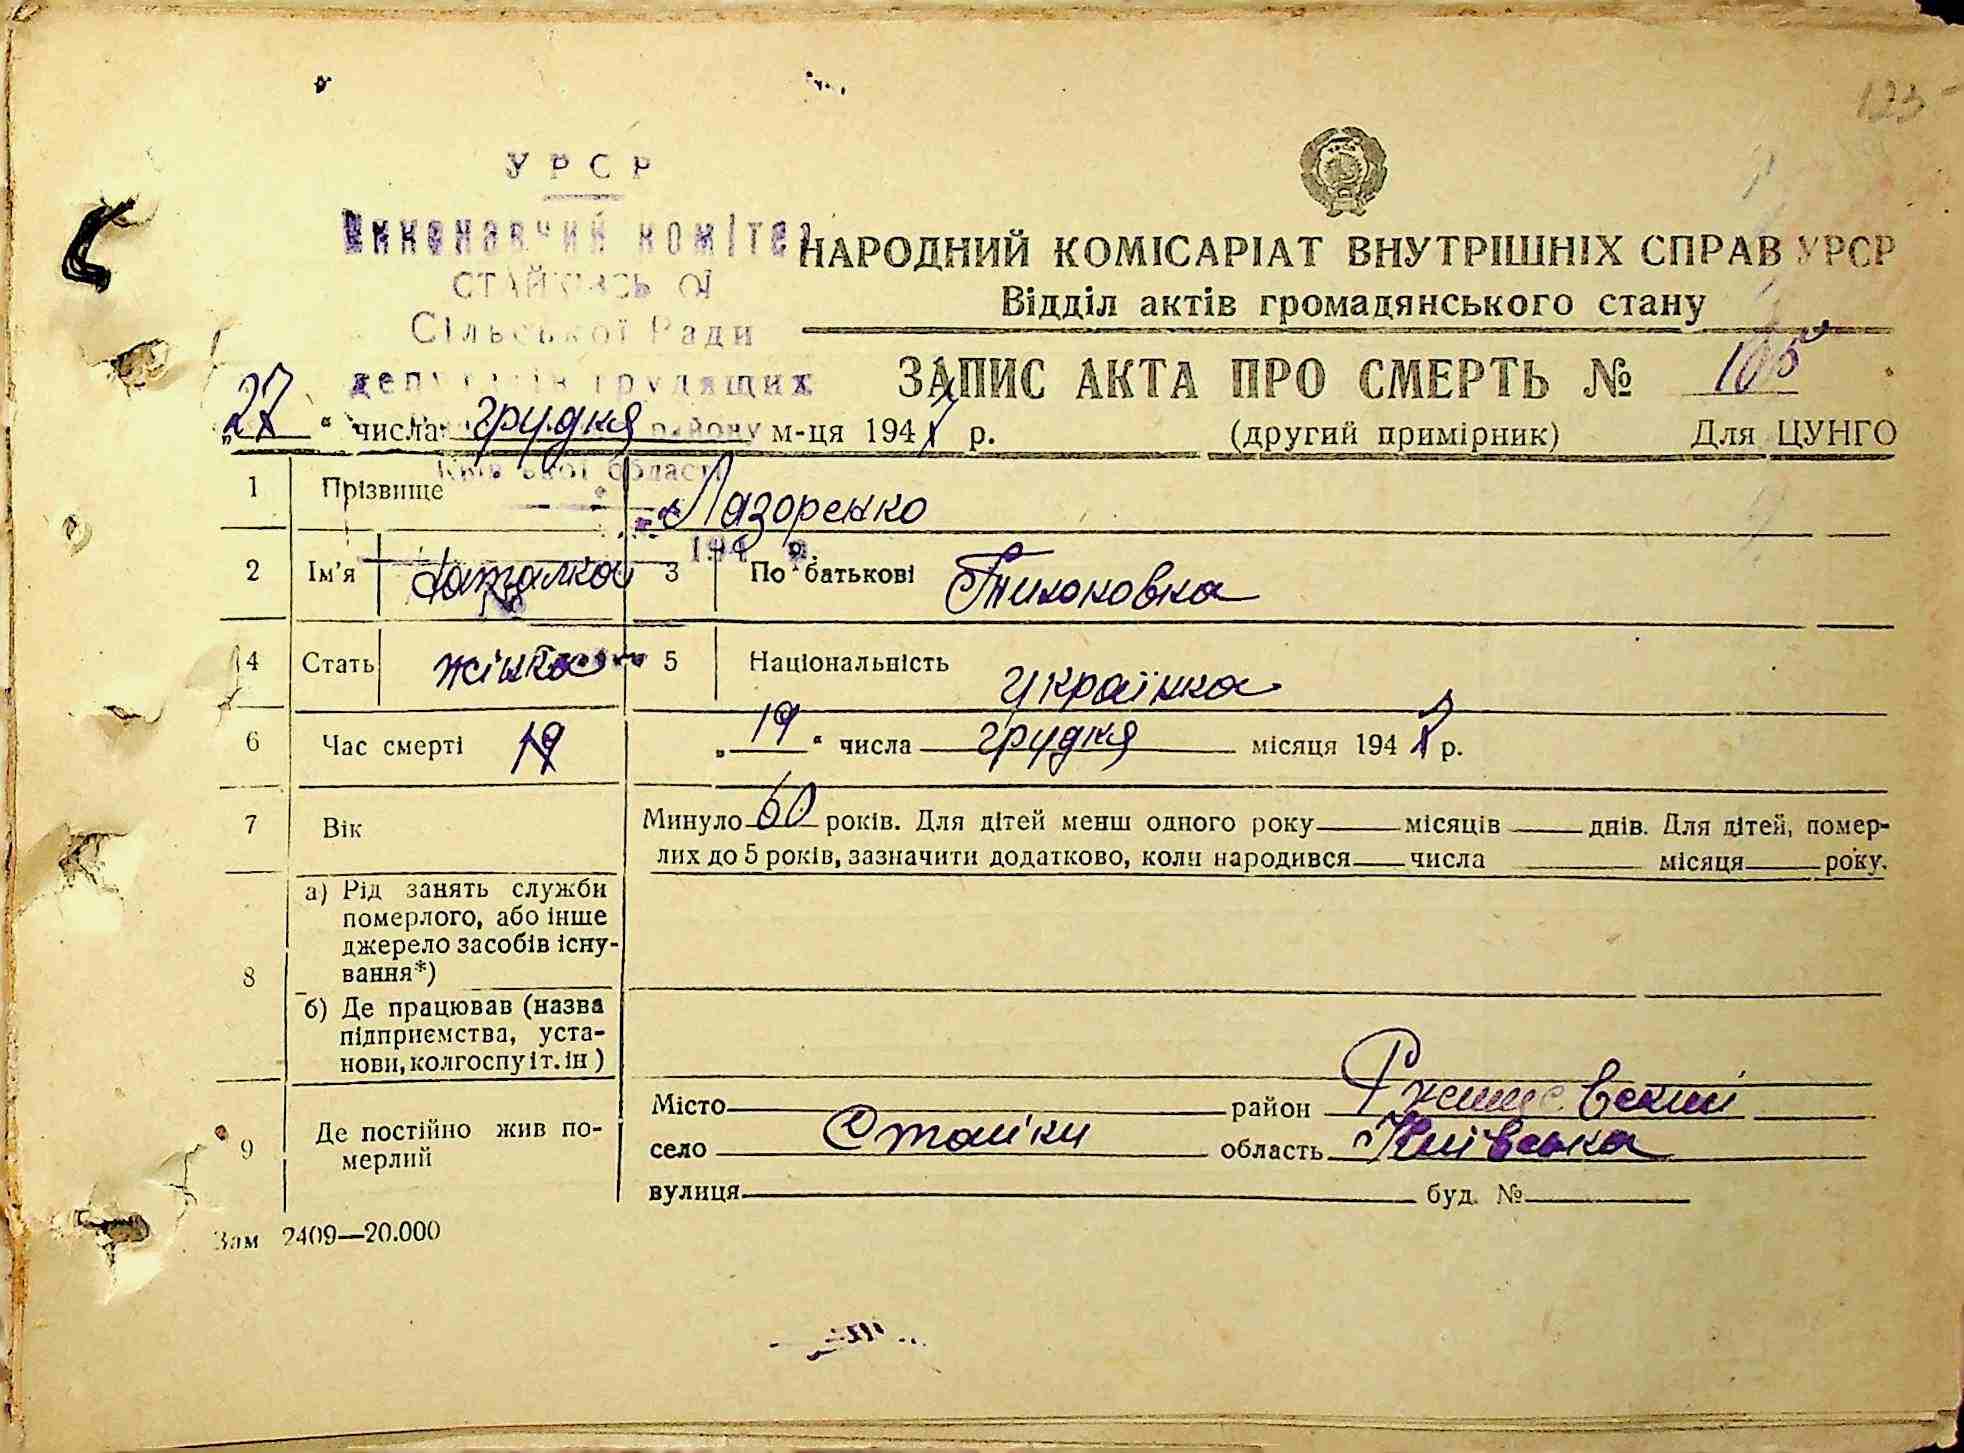 123
УРСР
Виконавчий комітет
СТАЙКІВСЬКОЇ
Сільської Ради
депутатів трудящих
району
Київської області
194 р.
НАРОДНИЙ КОМІСАРІАТ ВНУТРІШНІХ СПРАВ УРСР
Відділ актів громадянського стану
ЗАПИС АКТА ПРО СМЕРТЬ № 105
„27“ числа грудня м-ця 1947 р. (другий примірник) Для ЦУНГО
1 Прізвище Лазоренко
2 Ім'я Наталка 3 По батькові Тихоновна
4 Стать жінка 5 Національність українка
6 Час смерті 19 „19“ числа грудня місяця 1947 р.
7 Вік Минуло 60 років. Для дітей менш одного року місяців днів. Для дітей, помер-
лих до 5 років, зазначити додатково, коли народився числа місяця року.
8 а) Рід занять служби
померлого, або інше
джерело засобів існу-
вання*)
б) Де працював (назва
підприємства, уста-
нови, колгоспу і т. ін)
9 Де постійно жив по-
мерлий
Місто район Ржищевский
село Стайки область Київська
вулиця буд. №
Зам 2409—20.000